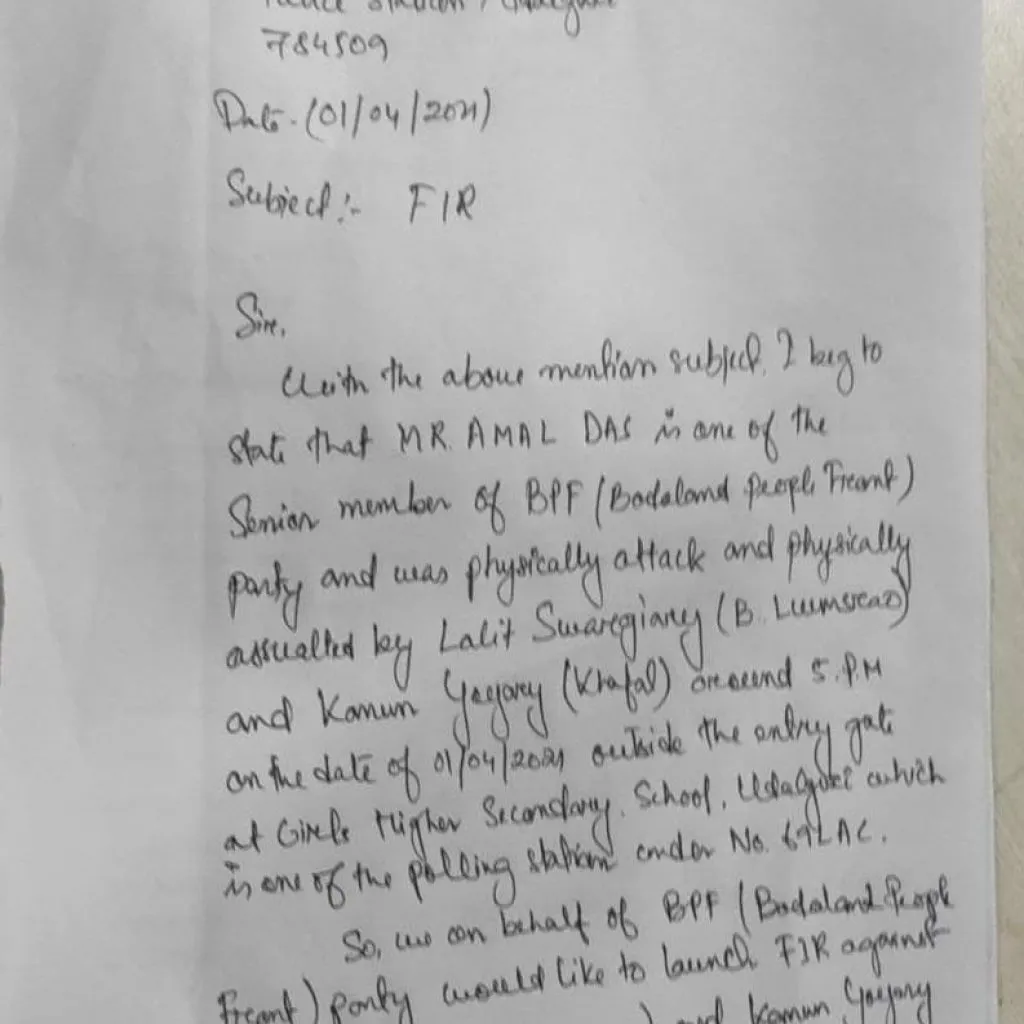 Police Station, Udalguri
784509
Date-(01/04/2021)
Subject:- FIR
Sir,
With the above mention subject, I beg to
state that MR. AMAL DAS is one of the
Senior member of BPF (Bodoland People Front)
party and was physically attack and physically
assualted by Lalit Swargiary (B.
and Kamun Goyary (Khafal) around 5.P.M
on the date of 01/04/2021 outside the entry gate
at Girls Higher Secondary. School, Udalguri which
is one of the polling station under No. 69 LAC.
So, we on behalf of BPF (Bodoland People
Front) party would like to launch FIR against
) and Kamun Goyary